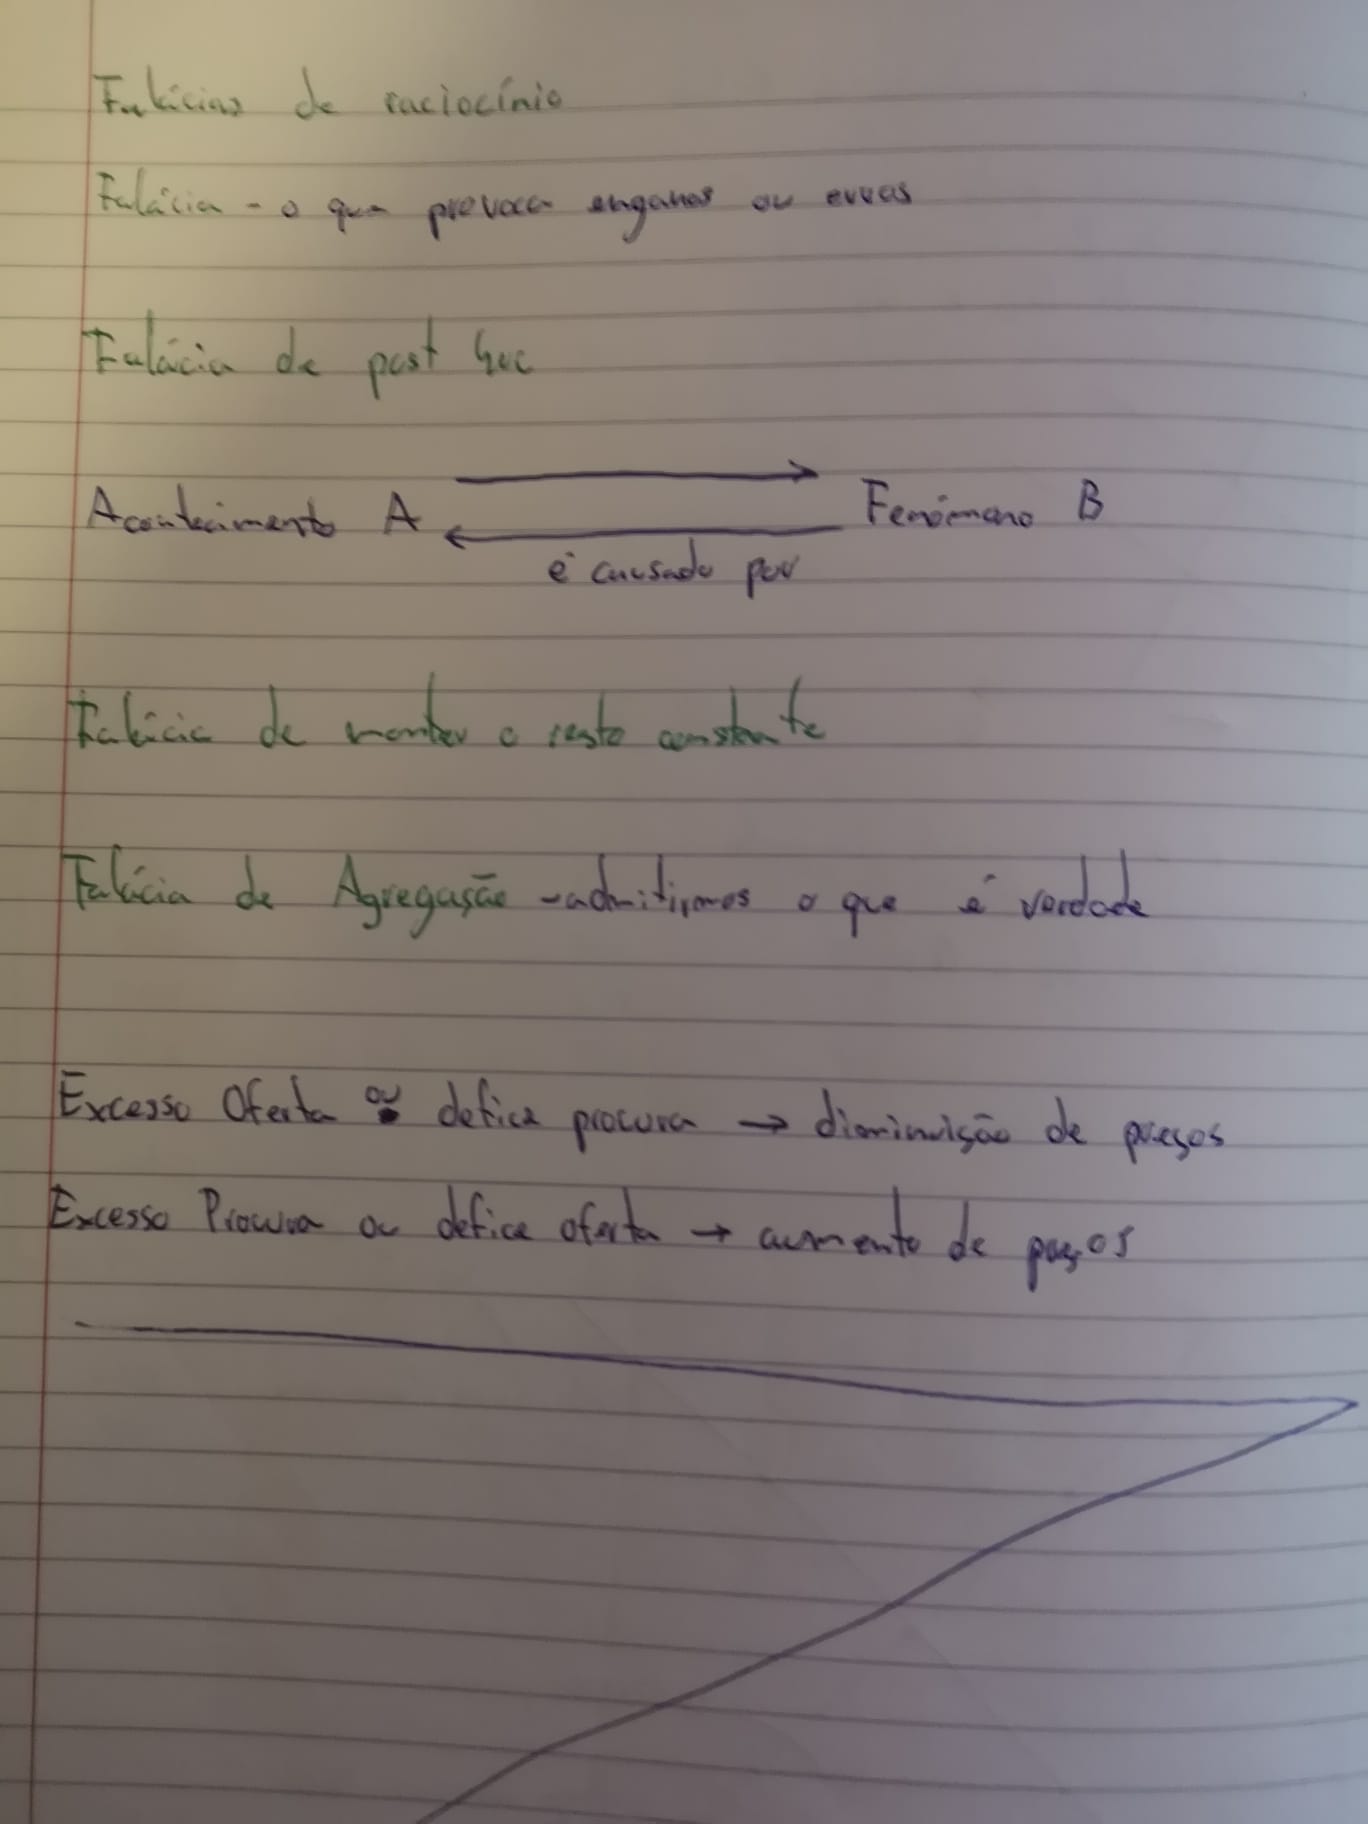 Falácias de raciocínio
Falácia - o que provoca enganos ou erros
Falácia de post hoc
Acontecimento A → Fenómeno B
← é causado por
Falácia de manter o resto constante
Falácia de Agregação - admitirmos o que é verdade
Excesso Oferta ou defice procura → diminuição de preços
Excesso Procura ou defice oferta → aumento de preços